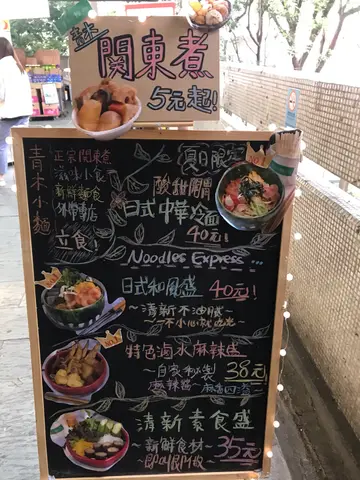 青木
関東煮
5元起!
青木小麵
正宗関東煮
滋味小食
新鮮麵食
外帶專店
立食!
夏日限定
酸甜開胃
日式中華冷麵
40元!
Noodles Express...
日式和風盛 40元!
~清新不油膩~
~一不小心就吃光~
特色滷水麻辣盛
~自家秘製~ 38元
麻辣醬
清新素食盛
~新鮮食材~ 35元
~即叫即做~